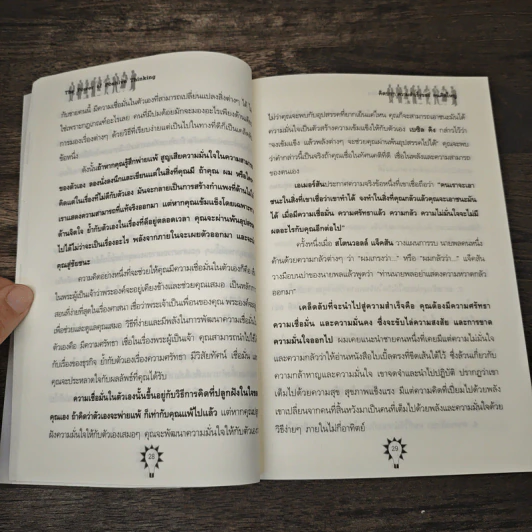 The Power of Positive Thinking
กับชายคนนี้ มีความเชื่อมั่นในตัวเองที่สามารถเปลี่ยนแปลงสิ่งต่างๆ ได้
ใช่เพราะกฎเกณฑ์อะไรเลย คนที่มีปมด้อยมักจะมองอะไรเพียงด้านเดียว
เรื่องราวต่างๆ ด้วยวิธีที่เรียบง่ายแต่เป็นไปในทางที่ดีก็เป็นเคล็ดลับ
ข้อหนึ่ง
ดังนั้นถ้าหากคุณรู้สึกพ่ายแพ้ สูญเสียความมั่นใจในความสามารถ
ของตัวเอง ลองนั่งลงนึกและเขียนแต่ในสิ่งที่คุณมี ถ้าคุณ ผม หรือใคร
คิดแต่ในเรื่องที่ไม่ดีกับตัวเอง มันจะกลายเป็นการสร้างกำแพงที่ด้านไม่ให้
เราแสดงความสามารถที่แท้จริงออกมา แต่หากคุณเข้มแข็งโดยเฉพาะทาง
ด้านจิตใจ ย้ำกับตัวเองในเรื่องที่ดีอยู่ตลอดเวลา คุณจะผ่านพ้นอุปสรรค
ไปได้ไม่ว่าจะเป็นเรื่องอะไร พลังจากภายในจะเผยตัวออกมา และจะนำ
คุณสู่ชัยชนะ
ความคิดอย่างหนึ่งที่จะช่วยให้คุณมีความเชื่อมั่นในตัวเองก็คือ
ในพระผู้เป็นเจ้าว่าพระองค์จะอยู่เคียงข้างและช่วยคุณเสมอ เป็นหลักการ
สอนที่ง่ายที่สุดในเรื่องศาสนา เชื่อว่าพระเจ้าเป็นเพื่อนของคุณ พระองค์
เพื่อช่วยและดูแลคุณเสมอ วิธีที่ง่ายและมีพลังในการพัฒนาความเชื่อมั่นใน
ตัวเองคือ มีความศรัทธา เชื่อในเรื่องพระผู้เป็นเจ้า คุณสามารถนำไปใช้
กับเรื่องของธุรกิจ ย้ำกับตัวเองเรื่องความศรัทธา มีวิสัยทัศน์ เชื่อมั่น แล้ว
คุณจะประหลาดใจกับผลลัพธ์ที่คุณได้รับ
ความเชื่อมั่นในตัวเองนั้นขึ้นอยู่กับวิธีการคิดที่ปลูกฝังในใจของ
คุณเอง ถ้าคิดว่าตัวเองจะพ่ายแพ้ ก็เท่ากับคุณแพ้ไปแล้ว แต่หากคุณปลูก
ฝังความมั่นใจให้กับตัวเองเสมอๆ คุณจะพัฒนาความมั่นใจให้กับตัวเอง
28
ไม่ว่าคุณจะพบกับอุปสรรคที่ยากเย็นแค่ไหน คุณก็จะสามารถเอาชนะมันได้
ความมั่นใจเป็นตัวสร้างความเข้มแข็งให้กับตัวเอง เบซิล คิง กล่าวไว้ว่า
"จงเข้มแข็ง แล้วพลังต่างๆ จะช่วยคุณผ่านพ้นอุปสรรคไปได้" คุณจะพบ
ว่าคำกล่าวนี้เป็นจริงถ้าคุณเชื่อในทัศนคติที่ดี เชื่อในพลังและความสามารถ
ของตนเอง
เอเมอร์สันประกาศความจริงข้อหนึ่งที่เขาเชื่อถือว่า "คนเราจะเอา
ชนะในสิ่งที่เราเชื่อว่าเราทำได้ จงทำในสิ่งที่คุณกลัวแล้วคุณจะเอาชนะมัน
ได้ เมื่อมีความเชื่อมั่น ความศรัทธาแล้ว ความกลัว ความไม่มั่นใจจะไม่มี
ผลอะไรกับคุณอีกต่อไป"
ครั้งหนึ่งเมื่อ สโตนวอลล์ แจ็คสัน วางแผนการรบ นายพลคนหนึ่ง
ค้านด้วยความกลัวต่างๆ ว่า "ผมเกรงว่า..." หรือ "ผมกลัวว่า..." แจ็คสัน
วางมือบนบ่าของนายพลแล้วพูดว่า "ท่านนายพลอย่าแสดงความหวาดกลัว
ออกมา"
เคล็ดลับที่จะนำไปสู่ความสำเร็จคือ คุณต้องมีความศรัทธา
ความเชื่อมั่น และความมั่นคง ซึ่งจะขับไล่ความสงสัย และการขาด
ความมั่นใจออกไป ผมเคยแนะนำชายคนหนึ่งที่เคยมีแต่ความไม่มั่นใจ
และความกลัวว่าให้อ่านหนังสือไบเบิ้ลตรงที่ขีดเส้นใต้ไว้ ซึ่งล้วนเกี่ยวกับ
ความกล้าหาญและความมั่นใจ เขาจดจำและนำไปปฏิบัติ ปรากฏว่าเขา
เต็มไปด้วยความสุข สุขภาพแข็งแรง มีแต่ความคิดที่เปี่ยมไปด้วยพลัง
เขาเปลี่ยนจากคนที่สิ้นหวังมาเป็นคนที่เต็มไปด้วยพลังและความมั่นใจด้วย
วิธีง่ายๆ ภายในไม่กี่อาทิตย์
29